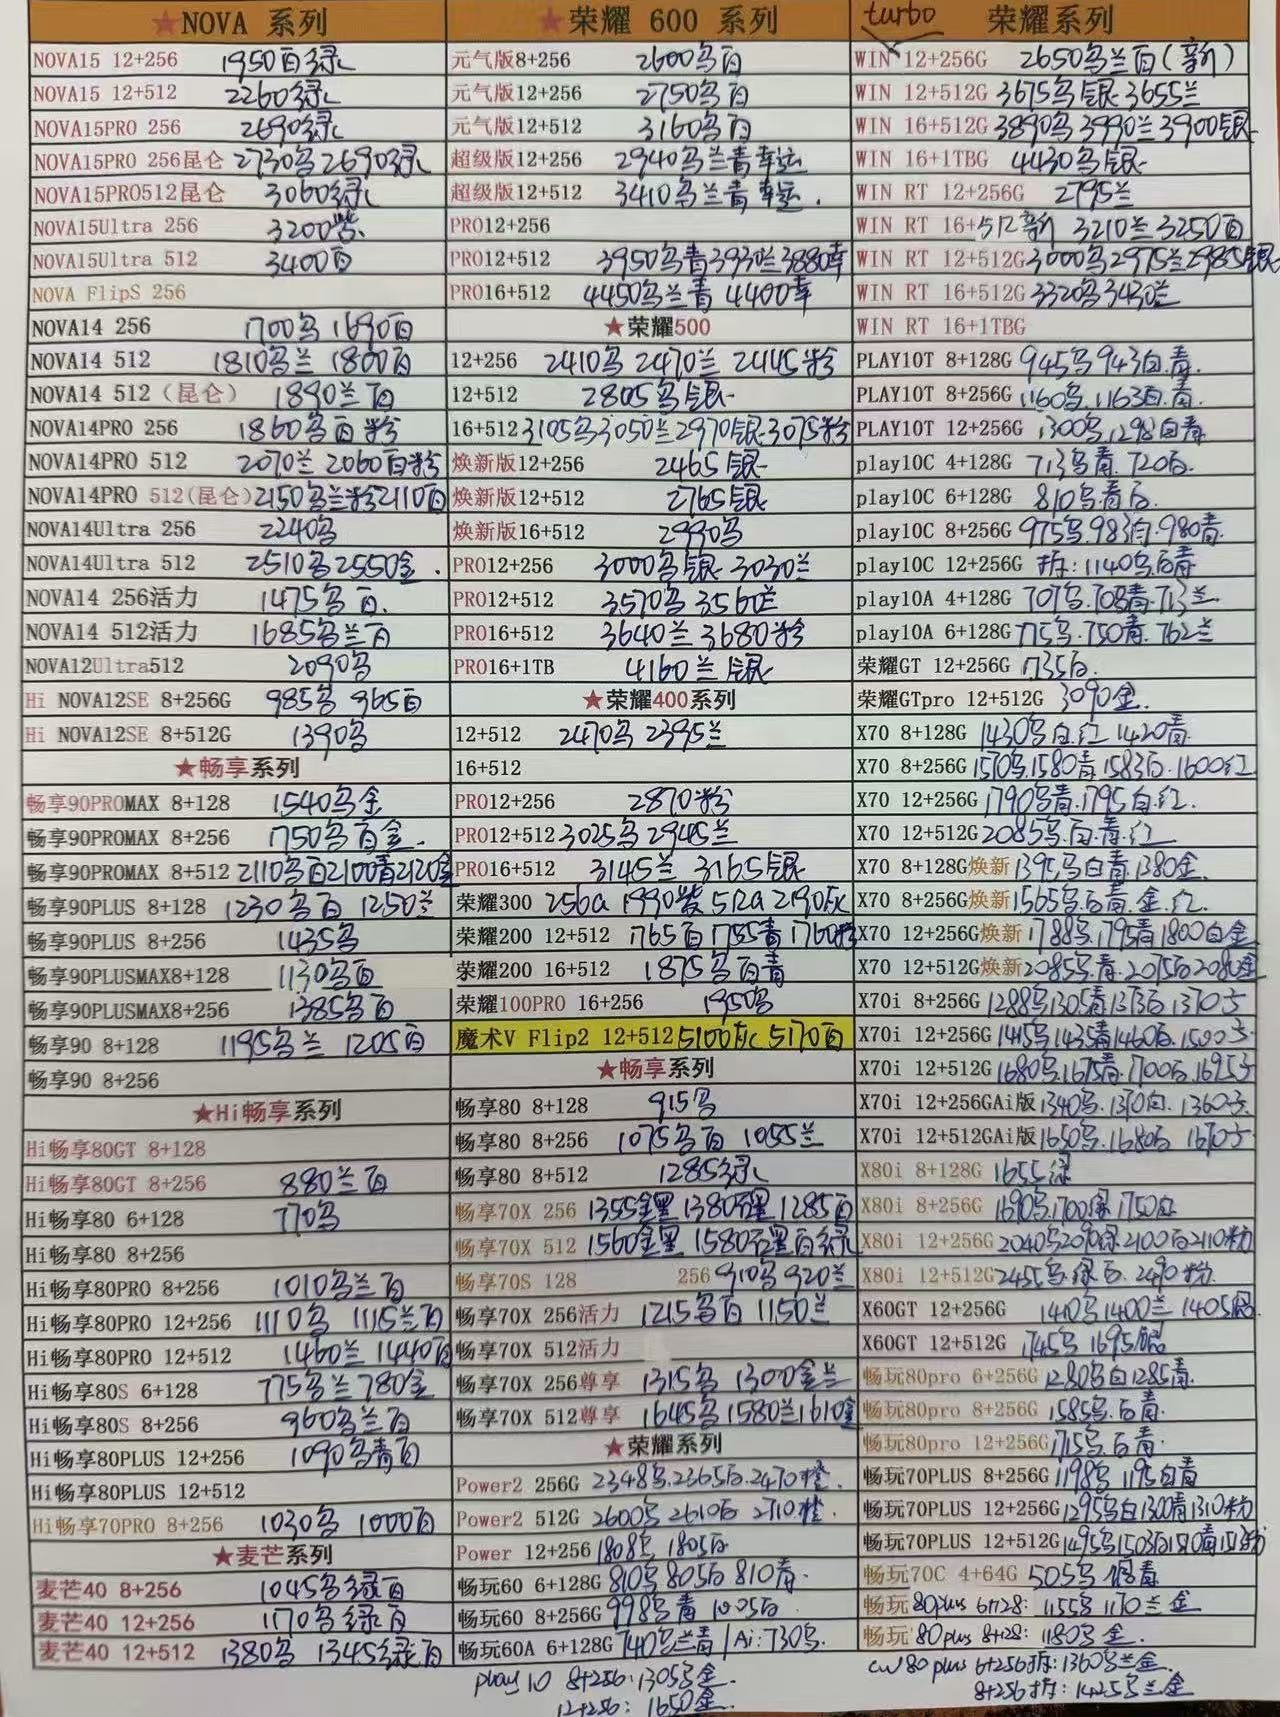 ★NOVA 系列
NOVA15 12+256 1950百绿
NOVA15 12+512 2260绿
NOVA15PRO 256 2690绿
NOVA15PRO 256昆仑 2730鸟 2690绿
NOVA15PRO512昆仑 3060绿
NOVA15Ultra 256 3200紫
NOVA15Ultra 512 3400百
NOVA FlipS 256
NOVA14 256 1700鸟 1690百
NOVA14 512 1810鸟兰 1800百
NOVA14 512（昆仑） 1890兰百
NOVA14PRO 256 1860鸟百粉
NOVA14PRO 512 2070兰 2060百粉
NOVA14PRO 512(昆仑) 2150鸟兰粉2110百
NOVA14Ultra 256 2240鸟
NOVA14Ultra 512 2510鸟2550金.
NOVA14 256活力 1475鸟百.
NOVA14 512活力 1685鸟兰百
NOVA12Ultra512 2090鸟
Hi NOVA12SE 8+256G 985鸟 965百
Hi NOVA12SE 8+512G 1390鸟
★畅享系列
畅享90PROMAX 8+128 1540鸟金
畅享90PROMAX 8+256 1750鸟百金.
畅享90PROMAX 8+512 2110鸟百2100青2120金
畅享90PLUS 8+128 1230鸟百 1250兰
畅享90PLUS 8+256 1435鸟
畅享90PLUSMAX8+128 1130鸟百
畅享90PLUSMAX8+256 1385鸟百
畅享90 8+128 1195鸟兰 1205百
畅享90 8+256
★Hi畅享系列
Hi畅享80GT 8+128
Hi畅享80GT 8+256 880兰百
Hi畅享80 6+128 770鸟
Hi畅享80 8+256
Hi畅享80PRO 8+256 1010鸟兰百
Hi畅享80PRO 12+256 1110鸟 1115兰百
Hi畅享80PRO 12+512 1460兰 1440百
Hi畅享80S 6+128 775鸟兰 780金
Hi畅享80S 8+256 960鸟兰百
Hi畅享80PLUS 12+256 1090鸟青百
Hi畅享80PLUS 12+512
Hi畅享70PRO 8+256 1030鸟 1000百
★麦芒系列
麦芒40 8+256 1045鸟绿百
麦芒40 12+256 1170鸟绿百
麦芒40 12+512 1380鸟 1345绿百
★荣耀 600 系列
元气版8+256 2600鸟百
元气版12+256 2750鸟百
元气版12+512 3160鸟百
超级版12+256 2940鸟兰青幸运
超级版12+512 3410鸟兰青幸运.
PRO12+256
PRO12+512 3950鸟青3930兰3880幸
PRO16+512 4450鸟兰青 4400幸
★荣耀500
12+256 2410鸟 2470兰 2445粉
12+512 2805鸟银
16+512 3105鸟3050兰2970银3075粉
焕新版12+256 2465银
焕新版12+512 2765银
焕新版16+512 2990鸟
PRO12+256 3000鸟银 3030兰
PRO12+512 3570鸟 3560兰
PRO16+512 3640兰 3680粉
PRO16+1TB 4160兰银
★荣耀400系列
12+512 2470鸟 2395兰
16+512
PRO12+256 2870粉
PRO12+512 3025鸟 2945兰
PRO16+512 3145兰 3165银
荣耀300 256G 1990紫 512G 2190灰
荣耀200 12+512 1765百 1755青 1760粉
荣耀200 16+512 1875鸟百青
荣耀100PRO 16+256 1950鸟
魔术V Flip2 12+512 5100灰 5170百
★畅享系列
畅享80 8+128 915鸟
畅享80 8+256 1075鸟百 1055兰
畅享80 8+512 1285绿
畅享70X 256 1355金黑 1380石墨 1285百
畅享70X 512 1560金黑 1580石墨百绿
畅享70S 128 256 910鸟 920兰
畅享70X 256活力 1215鸟百 1150兰
畅享70X 512活力
畅享70X 256尊享 1315鸟 1300金兰
畅享70X 512尊享 1645鸟1580兰1610金
★荣耀系列
Power2 256G 2348鸟.2365百.2470橙.
Power2 512G 2600鸟 2610百 2710橙.
Power 12+256 1808鸟 1805百
畅玩60 6+128G 810鸟 805百 810青.
畅玩60 8+256G 998鸟青 1005百.
畅玩60A 6+128G 740鸟兰青 / Ai:730鸟.
play 10 8+256:1305鸟金.
12+256: 1650金.
turbo 荣耀系列
WIN 12+256G 2650鸟兰百(新)
WIN 12+512G 3675鸟银 3655兰
WIN 16+512G 3890鸟 3990兰 3900银
WIN 16+1TBG 4430鸟银
WIN RT 12+256G 2795兰
WIN RT 16+512新 3210兰 3250百
WIN RT 12+512G 3000鸟2975兰2985银
WIN RT 16+512G 3320鸟3430兰
WIN RT 16+1TBG
PLAY10T 8+128G 945鸟943白青.
PLAY10T 8+256G 1160鸟.1163百.青.
PLAY10T 12+256G 1300鸟.1298白青
play10C 4+128G 713鸟青.720百.
play10C 6+128G 810鸟.青百.
play10C 8+256G 975鸟.983白.980青.
play10C 12+256G 拆:1140鸟百青
play10A 4+128G 707鸟.708青.713兰.
play10A 6+128G 775鸟.750青.762兰
荣耀GT 12+256G 1735百.
荣耀GTpro 12+512G 3090金.
X70 8+128G 1430鸟白.红 1420青.
X70 8+256G 1570鸟.1580青 1583百.1600红
X70 12+256G 1790鸟青.1795白.红.
X70 12+512G 2085鸟.百.青.红
X70 8+128G焕新 1395鸟白青.1380金.
X70 8+256G焕新 1565鸟.百青.金.红.
X70 12+256G焕新 1788鸟.1795青1800白金
X70 12+512G焕新 2085鸟.青.2075百2080金
X70i 8+256G 1288鸟1305青1373百 1370方
X70i 12+256G 1415鸟1435青1460百.1500方
X70i 12+512G 1680鸟.1675青.1700百.1695方
X70i 12+256GAi版 1340鸟.1370白.1360方.
X70i 12+512GAi版 1650鸟.1680百 1670方
X80i 8+128G 1655绿
X80i 8+256G 1690鸟.1700绿 1750白
X80i 12+256G 2040鸟2090绿2100百2110粉
X80i 12+512G 2455鸟.绿百.2490粉.
X60GT 12+256G 1410鸟1400兰 1405银
X60GT 12+512G 1745鸟 1695银
畅玩80pro 6+256G 1280鸟白1285青.
畅玩80pro 8+256G 1585鸟.百青.
畅玩80pro 12+256G 1715鸟.百青.
畅玩70PLUS 8+256G 1198鸟 1195白青
畅玩70PLUS 12+256G 1295鸟白1300青1310粉
畅玩70PLUS 12+512G 1495鸟1503百1510青
畅玩70C 4+64G 505鸟 青
畅玩80plus 6+128: 1155鸟 1170兰 金
畅玩80plus 8+128: 1180鸟金.
cw80plus 6+256拆:1360鸟兰金.
8+256拆:1425鸟兰金